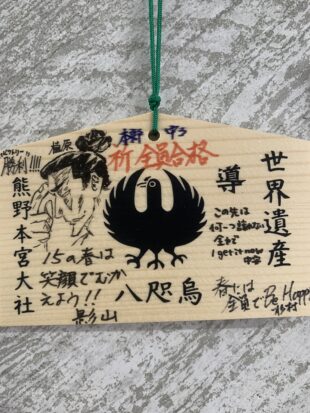 樹 中3
祈 全員合格
勝利!!!!
世界遺産
導
熊野本宮大社
八咫烏
この先は
何一つ譲れない
全力で
I get it now
15の春は
笑顔でむか
えよう!!
影山
春には
全員で Be Happy